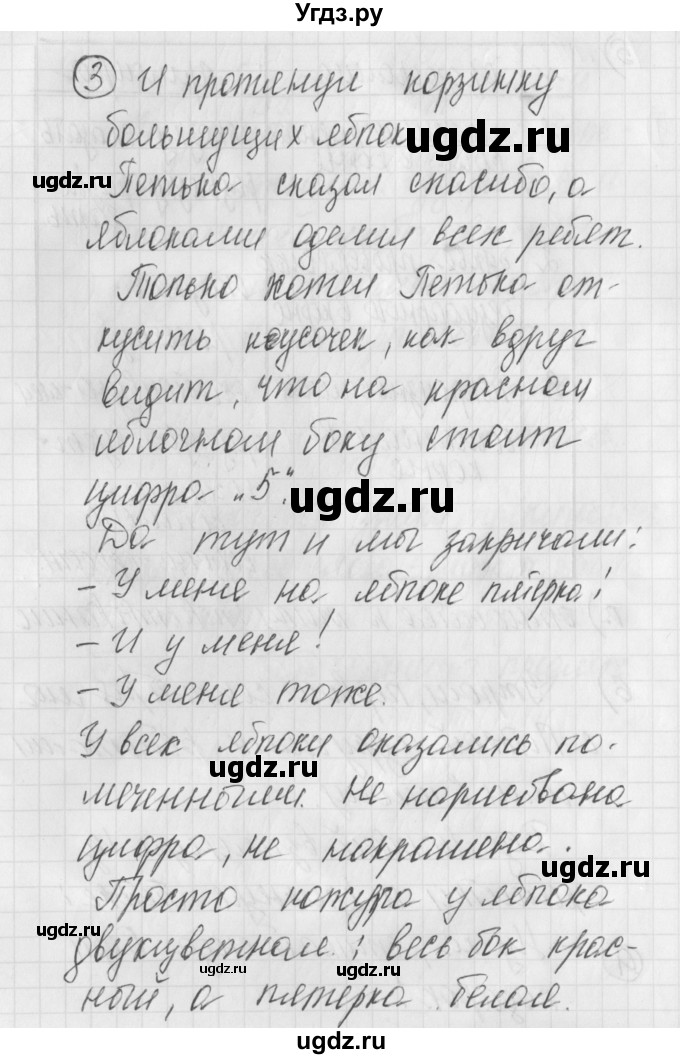 Угдз.ру
③ И протянул корзинку
большущих яблок
ugdz.ru
ugdz.ru
Петька сказал спасибо, а
яблоками оделил всех ребят.
Только хотел Петька от-
кусить кусочек, как вдруг
видит, что на красном
яблочном боку стоит
цифра „5".
ugdz.ru
Да тут и мы закричали:
- У меня на яблоке пятерка!
- И у меня!
- У меня тоже.
У всех яблоки оказались по-
ugdz.ru
меченными. Не нарисована
цифра, не накрашена.
ugdz.ru
Просто кожура у яблока
двухцветная: весь бок крас-
ugdz.ru
ный, а пятерка белая.
ugdz.ru